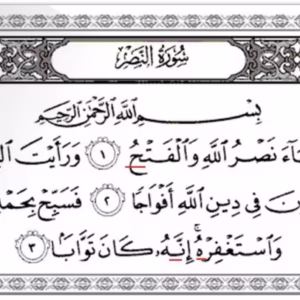 سُورَةُ النَّصْرِ
بِسْمِ اللَّهِ الرَّحْمَٰنِ الرَّحِيمِ
نَصْرُ اللَّهِ وَالْفَتْحُ ١ وَرَأَيْتَ
فِي دِينِ اللَّهِ أَفْوَاجًا ٢ فَسَبِّحْ
وَاسْتَغْفِرْهُ ۚ إِنَّهُ كَانَ تَوَّابًا ٣